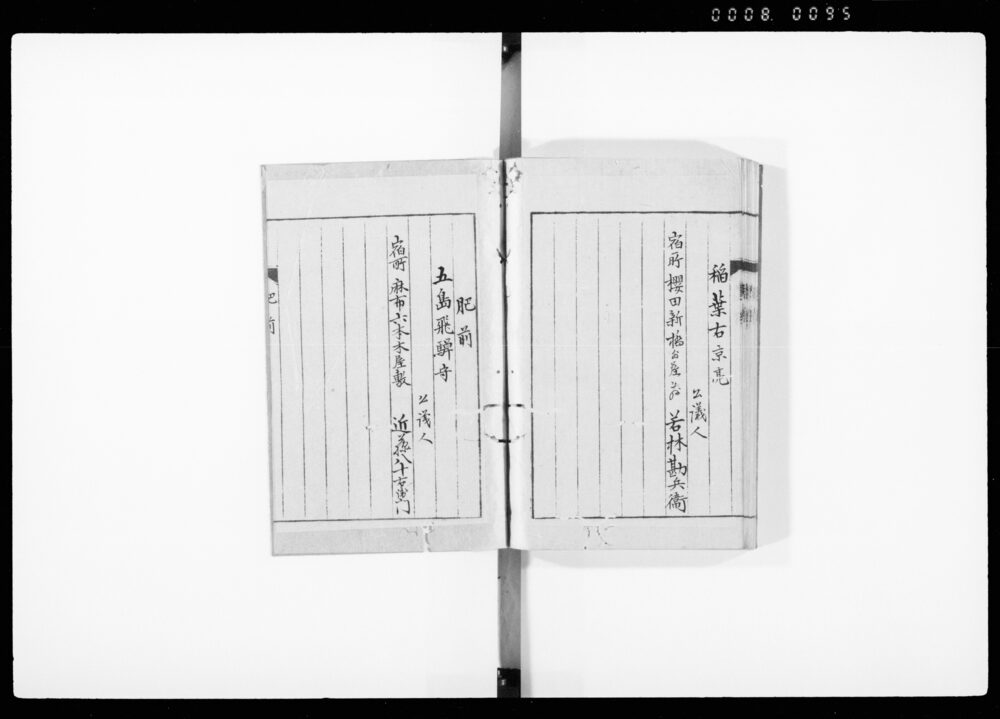 0008 0095
稲葉右京亮
公議人
宿所 櫻田新橋
若林勘兵衛
肥前
五島飛驒守
公議人
宿所 麻布六本木屋敷
近藤八十右衛門
肥前